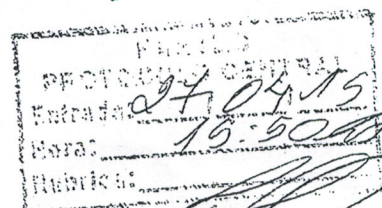 PROTOCOLO GERAL
Entrada: 27/04/15
Hora: 15:50
Rubrica: